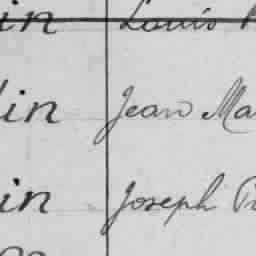 in Louis
lin Jean Ma
in Joseph Pr